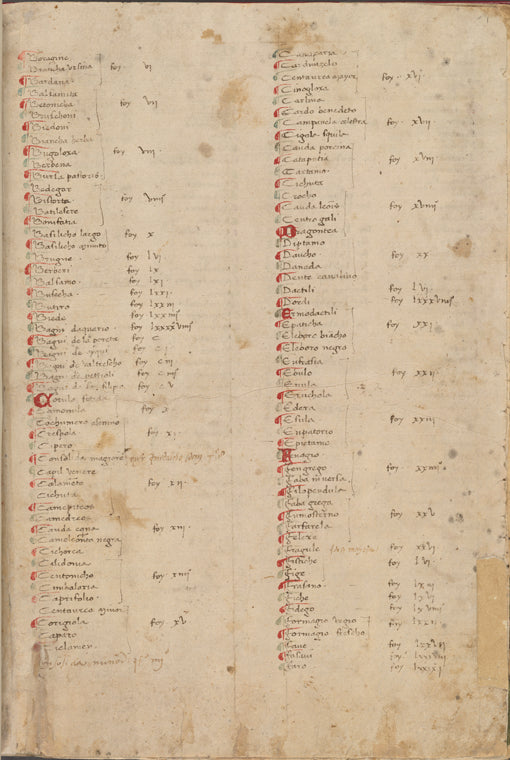 Boragine
Brancha ursina foy vi
Bardana
Balsamita
Betonicha foy vii
Bunichoni
Bledoni
Biancha herba
Bugolosa foy viii
Berbena
Bursa pastoris
Bedegar
Bistorta foy viiii
Batilesere
Bonifatia
Basilicho largo foy x
Basilicho aminto
Brugne foy lvi
Berberi foy lx
Balsamo foy lxi
foy lxxi
Butiro foy lxxiii
Biede foy lxxiiii
Bagni daquerio foy lxxxxviiii
Bagni de la poreta foy c
Bagni de foy ci
Bagni de foy ciii
Bagni de petriolo foy ciiii
Bagni de san filipo foy cv
Cotula fetida
Camomila foy x
Cochumero asinino
Crespola foy xi
Cipero
Consolida magiore
Capil venere
Calamento foy xii
Cichuta
Camepiteos
Camedreos
Cauda equina foy xiii
Cameleonta negra
Cichorea
Celidonia
Centonchio foy xiiii
Cimbalaria
Caprifolio
Centaurea minor
Corigiola foy xv
Caparo
Ciclamen
Carduzelo
Centaurea magior foy xvi
Cinoglosa
Carlina
Cardo benedeto
Campanela celestra foy xvii
Cigola squila
Cauda porcina
Cataputia foy xviii
Cartamo
Cichuta
Crocho
Cauda leonis foy xviiii
Centro gali
Dragontea
Diptamo
Daucho foy xx
Daneda
Dente cavalino
Dactili foy lvi
Dordi foy lxxxviiii
Ermodactili
Epaticha foy xxi
Eleboro biacho
Eleboro negro
Eufrasia
Ebulo foy xxii
Enula
Eruchola
Edera
Esula foy xxiii
Eupatorio
Epitamo
Fengrego foy xxiiii
Faba inversa
Filopendula
Faba grega
Fumosterno foy xxv
Farfarela
Felexe
Fragule foy xxvi
Fistiche foy lvi
Fige
Frasano foy lxiii
Fiche foy lxvi
Fidego foy lxviii
Formagio vegio foy lxxii
Formagio frescho
Fave foy lxxvii
Faxuli
Faro